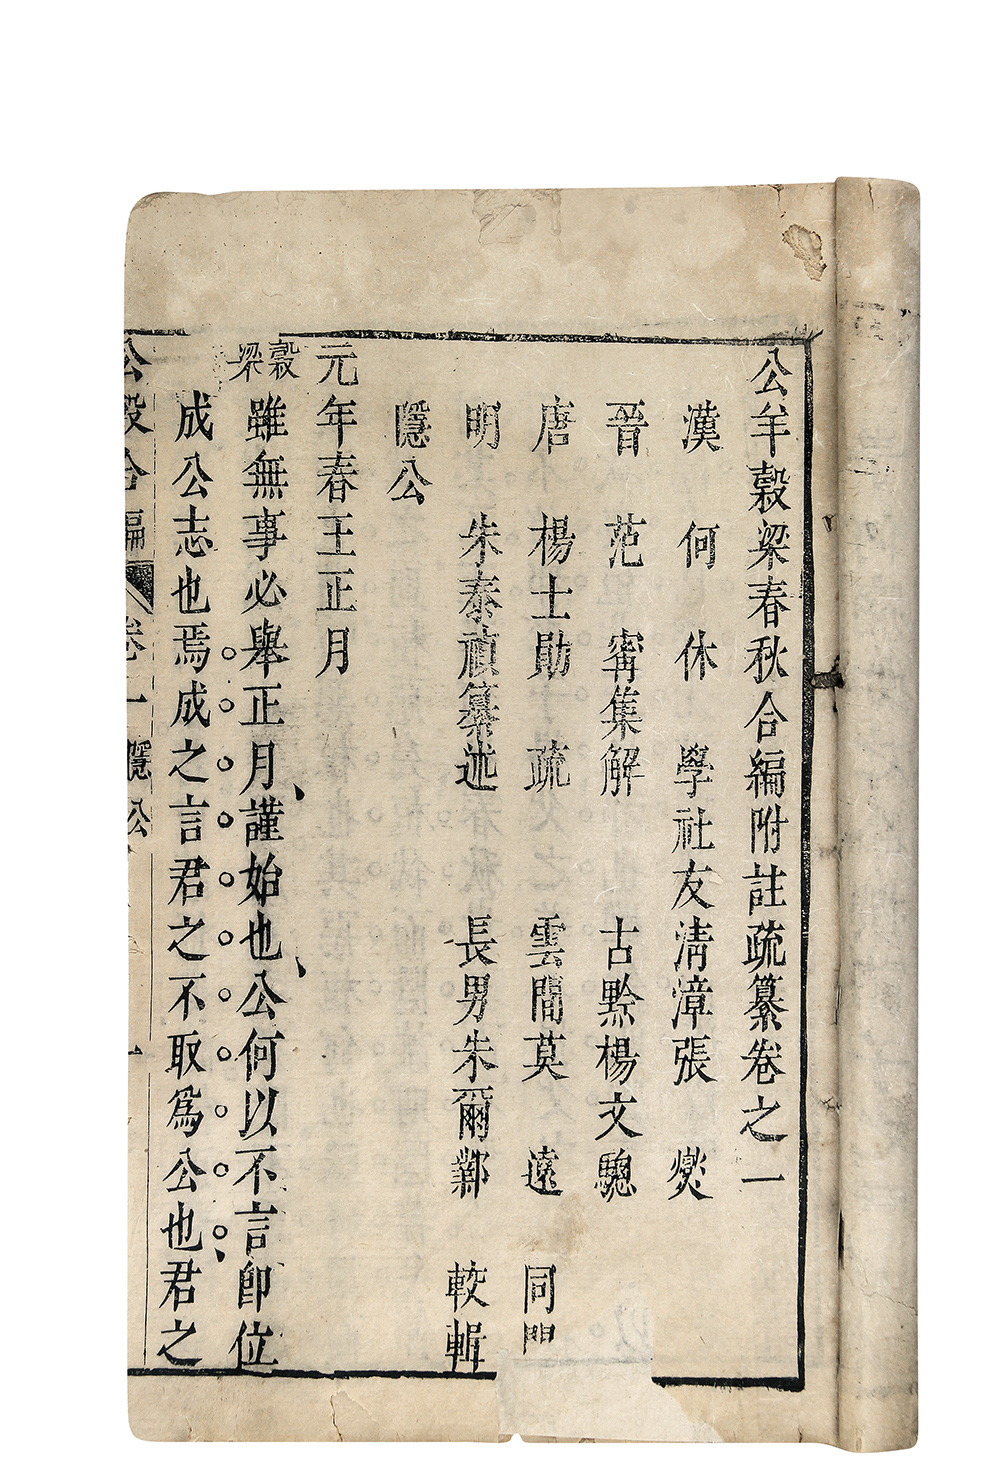 公羊穀梁春秋合編附註疏纂卷之一
漢 何 休 學社友清漳張 燮
晉 范 甯集解 古黔楊文驄
唐 楊士勛 疏 雲間莫 遠 同門
明 朱泰禎纂述 長男朱爾鄴 較輯
隱公
元年春王正月
穀梁 雖無事必舉正月謹始也公何以不言即位
成公志也焉成之言君之不取爲公也君之
公穀合編 卷一 隱公 一